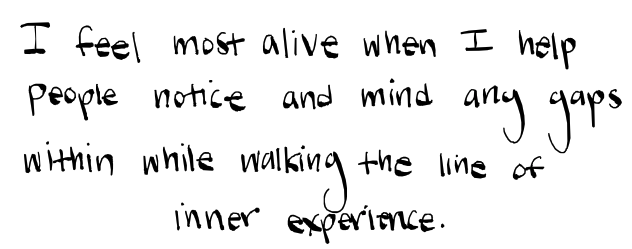 I feel most alive when I help
people notice and mind any gaps
within while walking the line of
inner experience.